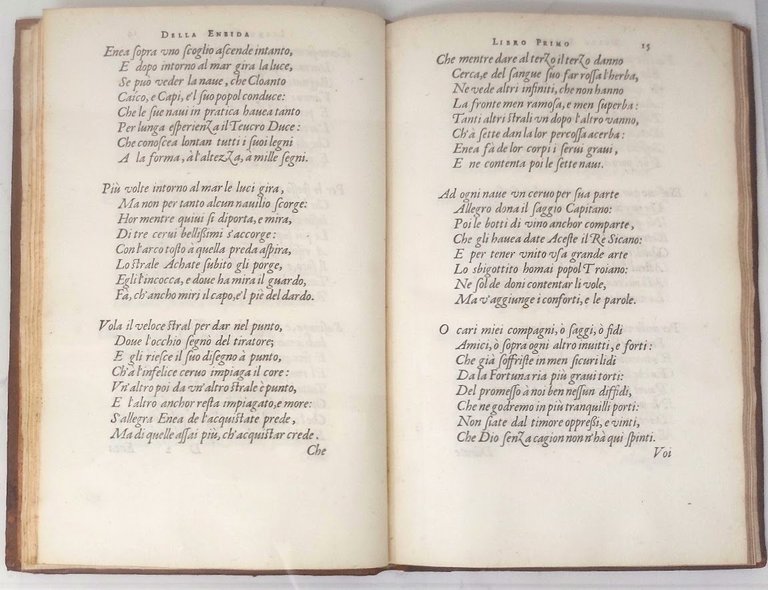 DELLA ENEIDA
Enea sopra vno ſcoglio aſcende intanto,
E dopo intorno al mar gira la luce,
Se può veder la naue, che Cloanto
Caico, e Capi, e'l ſuo popol conduce:
Che le ſue naui in pratica hauea tanto
Per lunga eſperienza il Teucro Duce:
Che conoſcea lontan tutti i ſuoi legni
A la forma, à l'altezza, à mille ſegni.
Più volte intorno al mar le luci gira,
Ma non per tanto alcun nauilio ſcorge:
Hor mentre quiui ſi diporta, e mira,
Di tre cerui belliſſimi s'accorge:
Con l'arco toſto à quella preda aſpira,
Lo ſtrale Achate ſubito gli porge,
Egli l'incocca, e doue ha mira il guardo,
Fà, ch'ancho miri il capo, e'l piè del dardo.
Vola il veloce ſtral per dar nel punto,
Doue l'occhio ſegno del tiratore;
E gli rieſce il ſuo diſegno à punto,
Ch'à l'infelice ceruo impiaga il core:
Vn'altro poi da vn'altro ſtrale è punto,
E l'altro anchor reſta impiagato, e more:
S'allegra Enea de l'acquiſtate prede,
Ma di quelle aſſai più, ch'acquiſtar crede.
Che
LIBRO PRIMO 15
Che mentre dare al terzo il terzo danno
Cerca, e del ſangue ſuo far roſſa l'herba,
Ne vede altri infiniti, che non hanno
La fronte men ramoſa, e men ſuperba:
Tanti altri ſtrali vn dopo l'altro vanno,
Ch'à ſette dan la lor percoſſa acerba:
Enea fà de lor corpi i ſerui graui,
E ne contenta poi le ſette naui.
Ad ogni naue vn ceruo per ſua parte
Allegro dona il ſaggio Capitano:
Poi le botti di vino anchor comparte,
Che gli hauea date Aceſte il Rè Sicano:
E per tener vnito vſa grande arte
Lo sbigottito homai popol Troiano:
Ne ſol de doni contentar li vole,
Ma v'aggiunge i conforti, e le parole.
O cari miei compagni, ò ſaggi, ò fidi
Amici, ò ſopra ogni altro inuitti, e forti:
Che già ſoffriſte in men ſicuri lidi
Da la Fortuna ria più graui torti:
Del promeſſo à noi ben neſſun diffidi,
Che ne godremo in più tranquilli porti:
Non ſiate dal timore oppreſſi, e vinti,
Che Dio ſenza cagion non n'hà qui ſpinti.
Voi